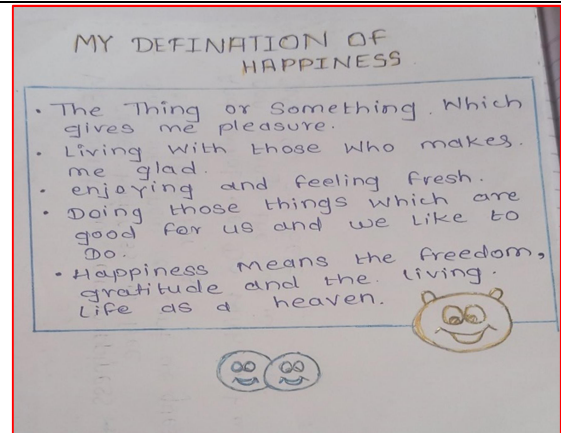 MY DEFINATION OF
HAPPINESS
• The Thing or Something. Which
gives me pleasure.
• Living with those who makes.
me glad.
• enjoying and feeling fresh.
• Doing those things which are
good for us and we Like to
Do.
• Happiness means the freedom,
gratitude and the living.
Life as a heaven.